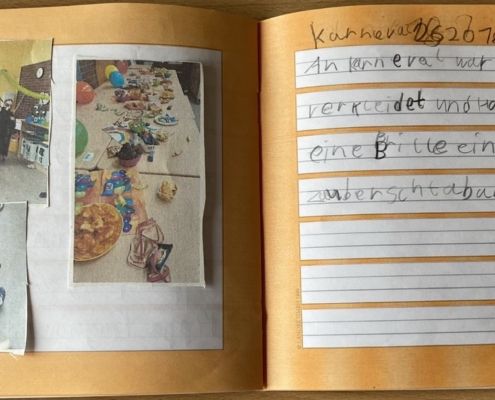 Karneval 2020
An karneval war
verkleidet und
eine Brille ein
zauberschtab